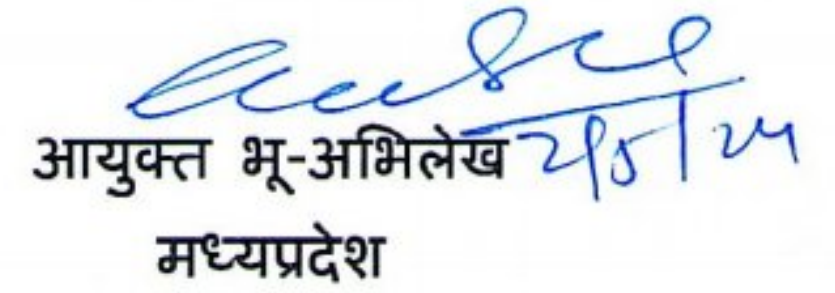 आयुक्त भू-अभिलेख
मध्यप्रदेश